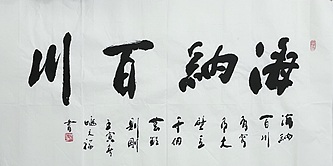 海納百川
海納
百川
有容
乃大
壁立
千仞
無欲
則剛
書